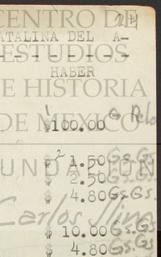 CENTRO DE
ATALINA DEL A-
ESTUDIOS
HABER
E HISTORIA
DE MEXICO
$ 100.00
FUNDACION
$ 1.50 Gs.Gs
$ 2.50 Gs.Gs
$ 4.80 Gs.Gs
Carlos Slim
$ 10.00 Gs.Gs
$ 4.80 Gs.Gs